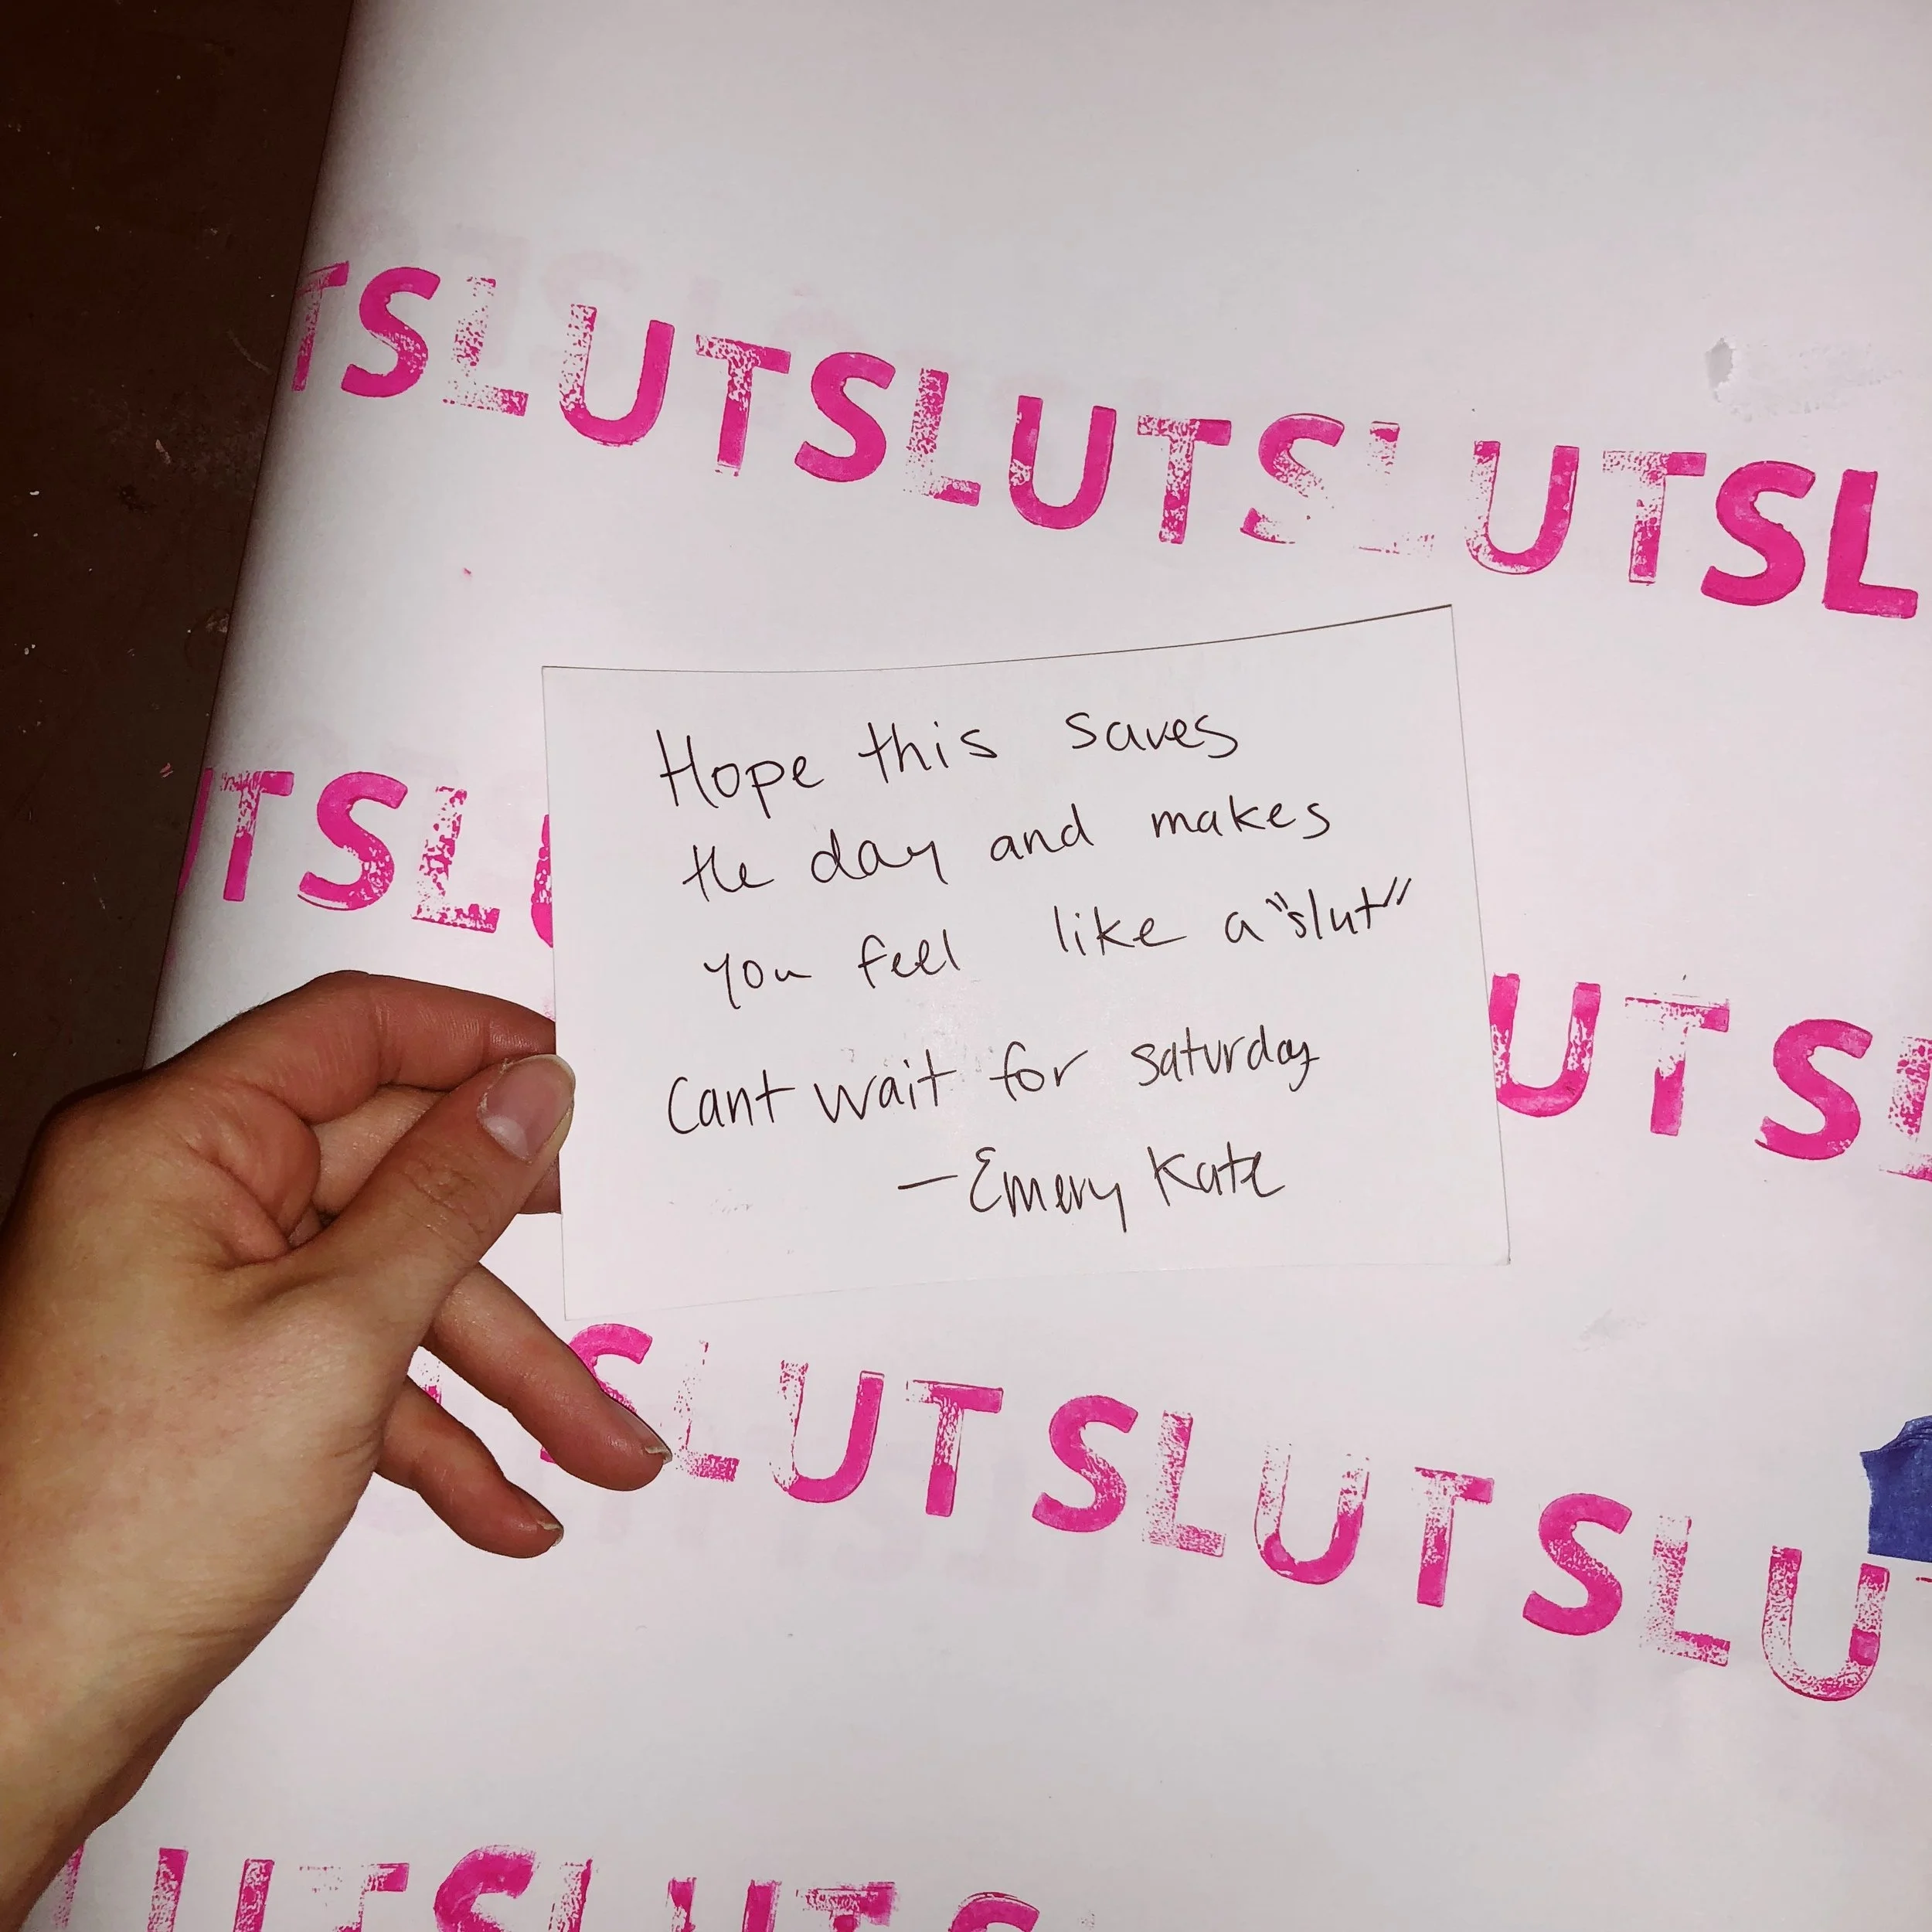 TSLUTSLUTSLUTSL
Hope this saves
the day and makes
you feel like a "slut"
Cant wait for saturday
—Emery Kate
UTSL
UTS
SLUTSLUTSLU
LUTSLUTS